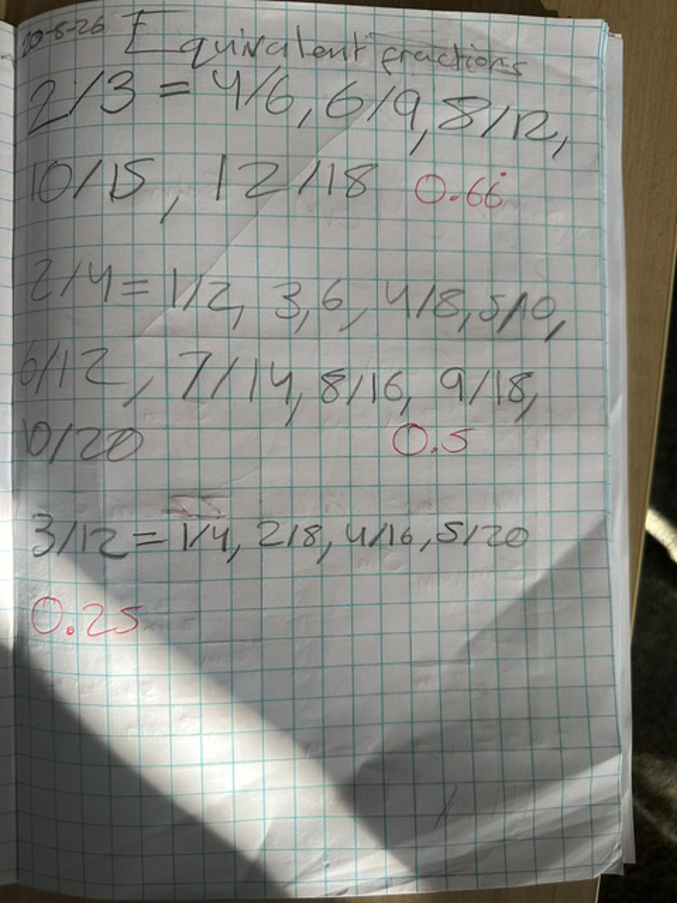 20-5-26 Equivalent fractions
2/3 = 4/6, 6/9, 8/12,
10/15, 12/18 0.66̇
2/4 = 1/2, 3,6, 4/8, 5/10,
6/12, 7/14, 8/16, 9/18,
10/20 0.5
3/12 = 1/4, 2/8, 4/16, 5/20
0.25